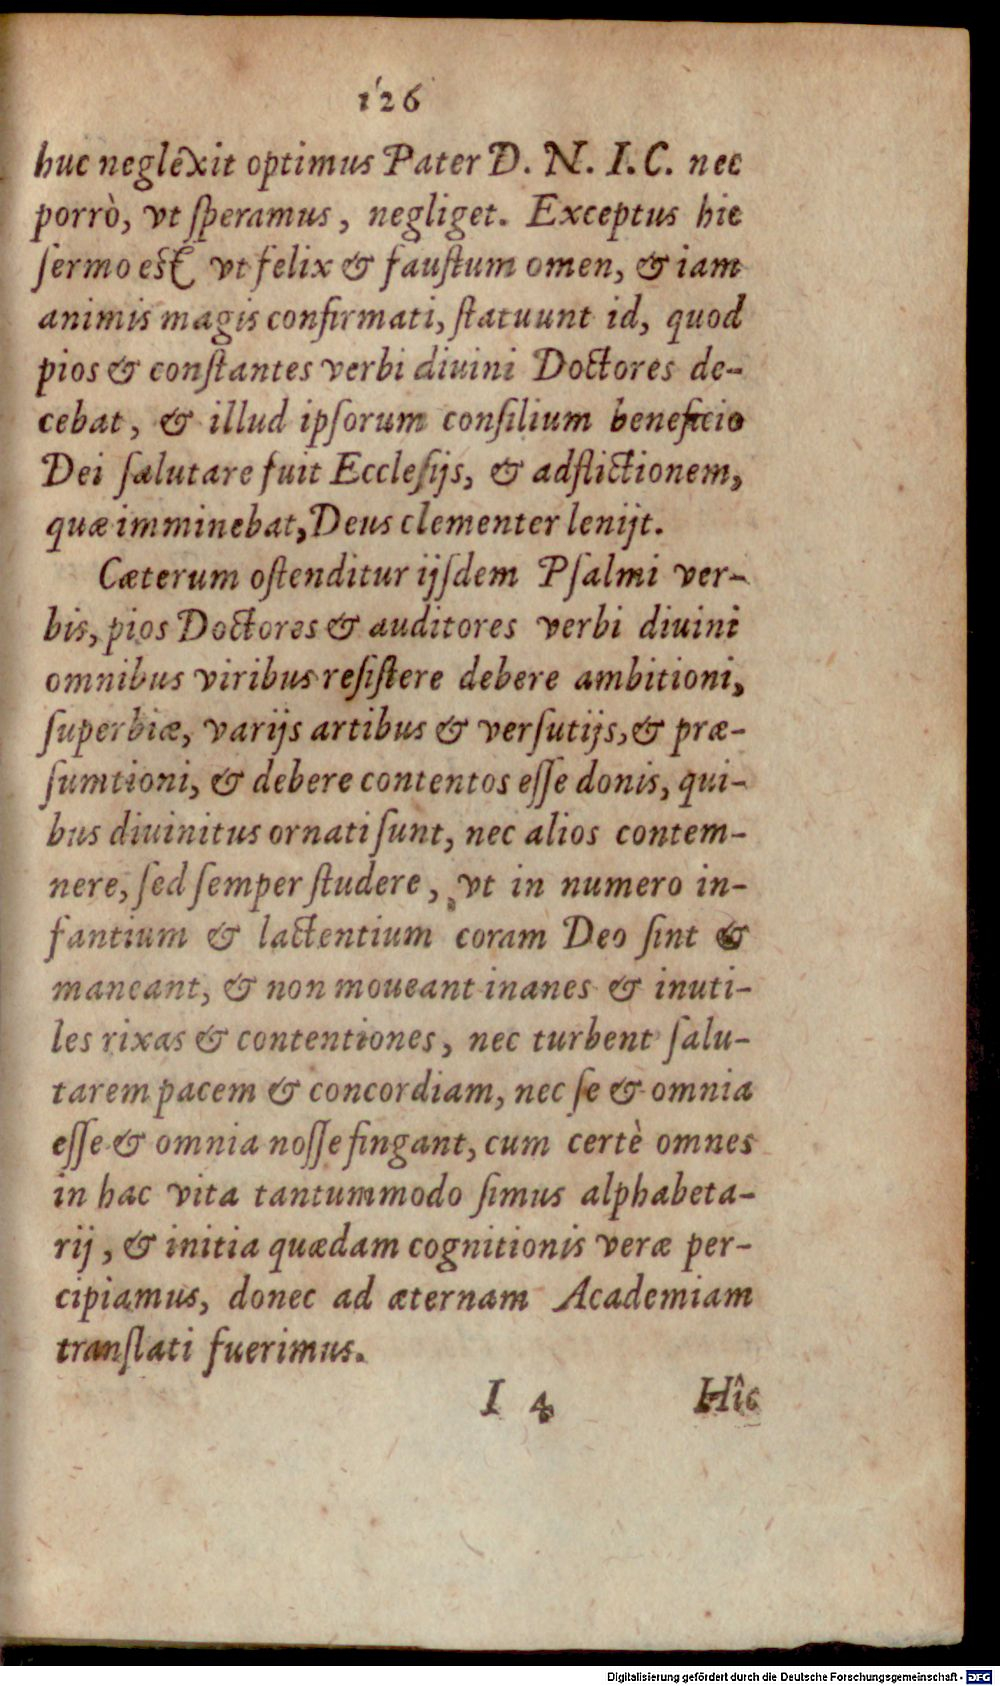 126
huc neglexit optimus Pater D. N. I. C. nec
porrò, vt ſperamus, negliget. Exceptus hic
ſermo eſt vt felix & fauſtum omen, & iam
animis magis confirmati, ſtatuunt id, quod
pios & conſtantes verbi diuini Doctores de-
cebat, & illud ipſorum conſilium beneficio
Dei ſalutare fuit Eccleſijs, & adflictionem,
quæ imminebat, Deus clementer lenijt.
Cæterum oſtenditur ijſdem Pſalmi ver-
bis, pios Doctores & auditores verbi diuini
omnibus viribus reſiſtere debere ambitioni,
ſuperbiæ, varijs artibus & verſutijs, & præ-
ſumtioni, & debere contentos eſſe donis, qui-
bus diuinitus ornati ſunt, nec alios contem-
nere, ſed ſemper ſtudere, vt in numero in-
fantium & lactentium coram Deo ſint &
maneant, & non moueant inanes & inuti-
les rixas & contentiones, nec turbent ſalu-
tarem pacem & concordiam, nec ſe & omnia
eſſe & omnia noſſe fingant, cum certè omnes
in hac vita tantummodo ſimus alphabeta-
rij, & initia quædam cognitionis veræ per-
cipiamus, donec ad æternam Academiam
tranſlati fuerimus.
I 4 Hîc
Digitalisierung gefördert durch die Deutsche Forschungsgemeinschaft - DFG